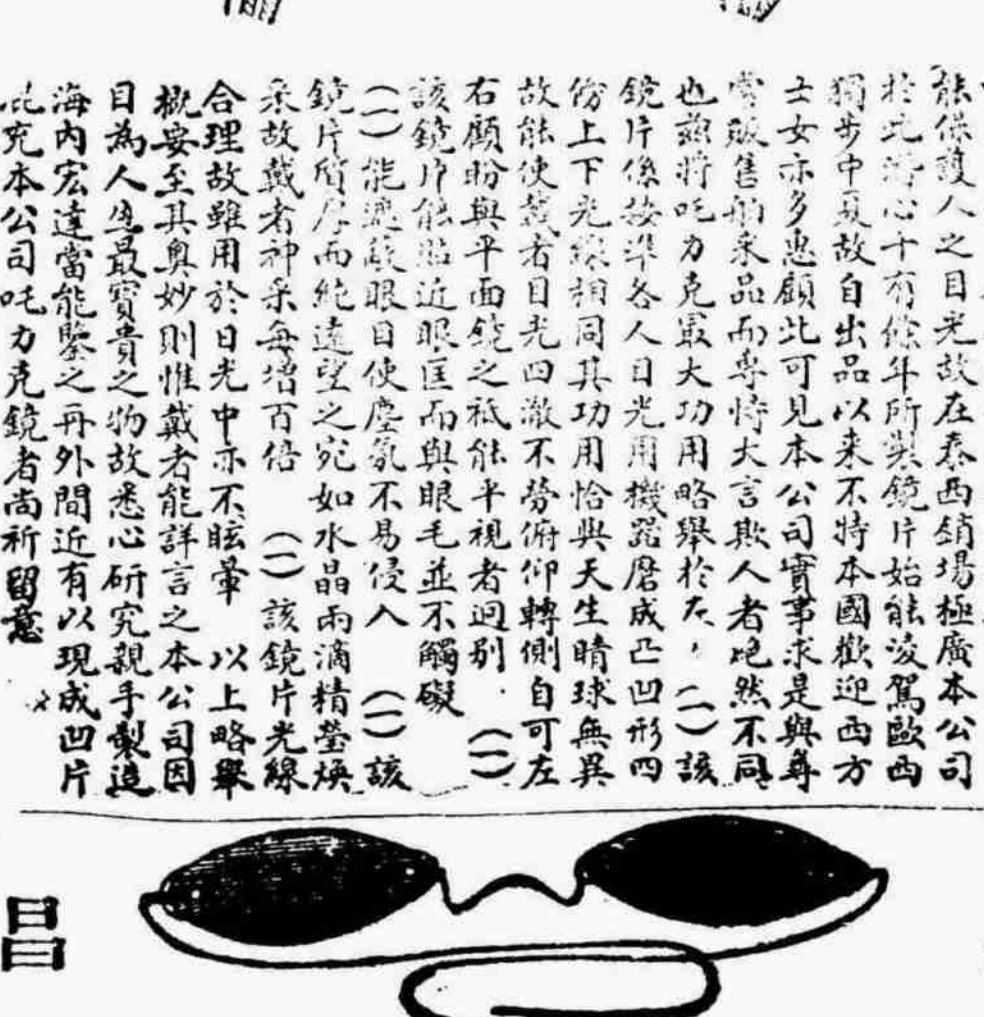 能保護人之目光故在泰西銷場極廣本公司
於此潛心十有餘年所製鏡片始能凌駕歐西
獨步中夏故自出品以來不特本國歡迎西方
士女亦多惠顧此可見本公司實事求是與尋
常販售舶來品而專恃大言欺人者絕然不同
也茲將吒力克最大功用略舉於左、(一)該
鏡片係按準各人目光用機器磨成凸凹形四
傍上下光線相同其功用恰與天生睛球無異
故能使戴者目光四澈不勞俯仰轉側自可左
右顧盼與平面鏡之祗能平視者迥別.(一)
該鏡片能貼近眼匡而與眼毛並不觸礙
(一)能遮蔽眼目使塵氛不易侵入 (一)該
鏡片質厚而純遠望之宛如水晶雨滴精瑩煥
采故戴者神采每增百倍 (一)該鏡片光線
合理故雖用於日光中亦不眩暈 以上略舉
概要至其奧妙則惟戴者能詳言之本公司因
目為人生最寶貴之物故悉心研究親手製造
海內宏達當能鑒之再外間近有以現成凹片
混充本公司吒力克鏡者尚祈留意
昌